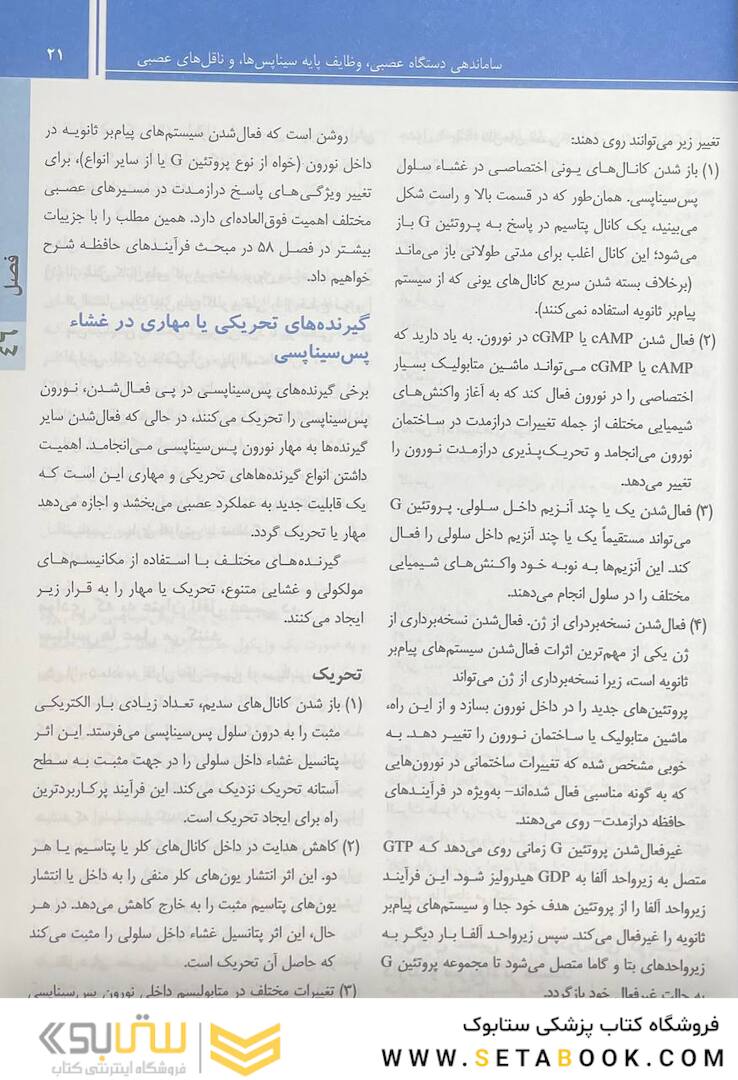 ۲۱
ساماندهی دستگاه عصبی، وظایف پایه سیناپس‌ها، و ناقل‌های عصبی
تغییر زیر می‌توانند روی دهند:
(۱) باز شدن کانال‌های یونی اختصاصی در غشاء سلول
پس‌سیناپسی. همان‌طور که در قسمت بالا و راست شکل
می‌بینید، یک کانال پتاسیم در پاسخ به پروتئین G باز
می‌شود؛ این کانال اغلب برای مدتی طولانی باز می‌ماند
(برخلاف بسته شدن سریع کانال‌های یونی که از سیستم
پیام‌بر ثانویه استفاده نمی‌کنند).
(۲) فعال شدن cAMP یا cGMP در نورون. به یاد دارید که
cAMP یا cGMP می‌تواند ماشین متابولیک بسیار
اختصاصی را در نورون فعال کند که به آغاز واکنش‌های
شیمیایی مختلف از جمله تغییرات درازمدت در ساختمان
نورون می‌انجامد و تحریک‌پذیری درازمدت نورون را
تغییر می‌دهد.
(۳) فعال‌شدن یک یا چند آنزیم داخل سلولی. پروتئین G
می‌تواند مستقیماً یک یا چند آنزیم داخل سلولی را فعال
کند. این آنزیم‌ها به نوبه خود واکنش‌های شیمیایی
مختلف را در سلول انجام می‌دهند.
(۴) فعال‌شدن نسخه‌بردرای از ژن. فعال‌شدن نسخه‌برداری از
ژن یکی از مهم‌ترین اثرات فعال‌شدن سیستم‌های پیام‌بر
ثانویه است، زیرا نسخه‌برداری از ژن می‌تواند
پروتئین‌های جدید را در داخل نورون بسازد و از این راه،
ماشین متابولیک یا ساختمان نورون را تغییر دهد. به
خوبی مشخص شده که تغییرات ساختمانی در نورون‌هایی
که به گونه مناسبی فعال شده‌اند– به‌ویژه در فرآیندهای
حافظه درازمدت– روی می‌دهند.
غیرفعال‌شدن پروتئین G زمانی روی می‌دهد که GTP
متصل به زیرواحد آلفا به GDP هیدرولیز شود. این فرآیند
زیرواحد آلفا را از پروتئین هدف خود جدا و سیستم‌های پیام‌بر
ثانویه را غیرفعال می‌کند. سپس زیرواحد آلفا بار دیگر به
زیرواحدهای بتا و گاما متصل می‌شود تا مجموعه پروتئین G
به حالت غیرفعال خود بازگردد.
روشن است که فعال‌شدن سیستم‌های پیام‌بر ثانویه در
داخل نورون (خواه از نوع پروتئین G یا از سایر انواع)، برای
تغییر ویژگی‌های پاسخ درازمدت در مسیرهای عصبی
مختلف اهمیت فوق‌العاده‌ای دارد. همین مطلب را با جزییات
بیشتر در فصل ۵۸ در مبحث فرآیندهای حافظه شرح
خواهیم داد.
گیرنده‌های تحریکی یا مهاری در غشاء
پس‌سیناپسی
برخی گیرنده‌های پس‌سیناپسی در پی فعال‌شدن، نورون
پس‌سیناپسی را تحریک می‌کنند، در حالی که فعال‌شدن سایر
گیرنده‌ها به مهار نورون پس‌سیناپسی می‌انجامد. اهمیت
داشتن انواع گیرنده‌هاهای تحریکی و مهاری این است که
یک قابلیت جدید به عملکرد عصبی می‌بخشد و اجازه می‌دهد
مهار یا تحریک گردد.
گیرنده‌های مختلف با استفاده از مکانیسم‌های
مولکولی و غشایی متنوع، تحریک یا مهار را به قرار زیر
ایجاد می‌کنند.
تحریک
(۱) باز شدن کانال‌های سدیم، تعداد زیادی بار الکتریکی
مثبت را به درون سلول پس‌سیناپسی می‌فرستد. این اثر
پتانسیل غشاء داخل سلولی را در جهت مثبت به سطح
آستانه تحریک نزدیک می‌کند. این فرآیند پرکاربردترین
راه برای ایجاد تحریک است.
(۲) کاهش هدایت در داخل کانال‌های کلر یا پتاسیم یا هر
دو. این اثر انتشار یون‌های کلر منفی را به داخل یا انتشار
یون‌های پتاسیم مثبت را به خارج کاهش می‌دهد. در هر
حال، این اثر پتانسیل غشاء داخل سلولی را مثبت می‌کند
که حاصل آن تحریک است.
(۳) تغییرات مختلف در متابولیسم داخلی نورون پس‌سیناپسی
فصل
۴۶
فروشگاه کتاب پزشکی ستابوک
WWW.SETABOOK.COM
ستابوک
فروشگاه اینترنتی کتاب